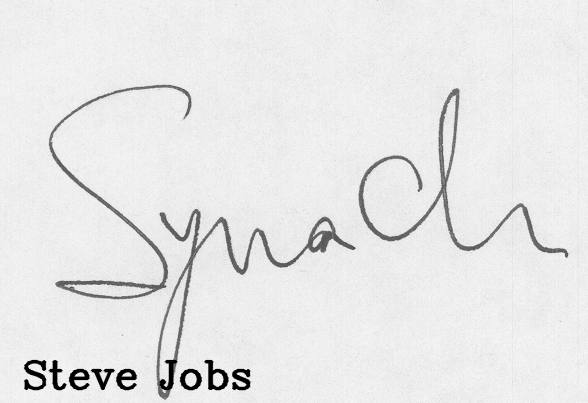 Synach
Steve Jobs